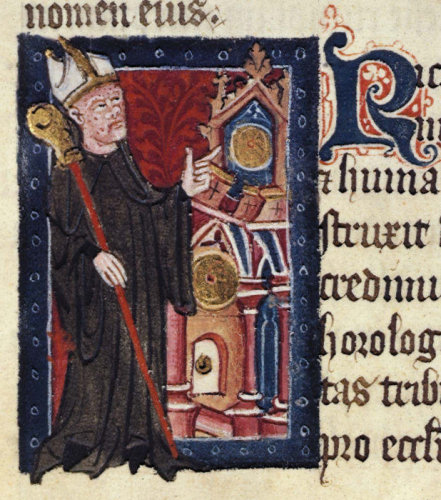 nomen eius.
Ric
⁊ huma
struxit
credimu
horolog
tas trib
pro eccl